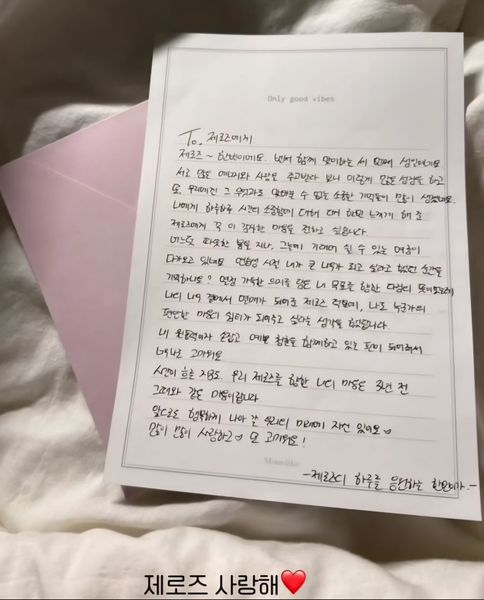 Only good vibes
To. 제로즈에게
제로즈~ 한빈이에요. 벌써 함께 맞이하는 세 번째 생일이네요
서로 많은 에너지와 사랑을 주고받다 보니 이렇게 많은 성장을 하고
또, 우리에겐 그 무엇과도 바꿀 수 없는 소중한 기억들이 많이 생겼네요.
나에게 하루하루 시간의 소중함에 대해 더더 한번 느끼게 해 준
제로즈에게 꼭 이 감사한 마음을 전하고 싶습니다.
어느덧 따뜻한 봄을 지나, 그늘에 기대어 쉴 수 있는 여름이
다가오고 있네요. 연습생 시절 내가 큰 나무가 되고 싶다고 했었던 순간을
기억하나요? 변함 가득한 의미를 담은 내 목표를 향한 다짐의 뜻이었는데
나의 나무 곁에서 열매가 되어준 제로즈 덕분에, 나도 누군가의
편안한 마음의 쉼터가 되어주고 싶다는 생각을 했었습니다
내 원동력이자 손잡고 예쁜 청춘을 함께하고 있는 편이 되어줘서
너무나도 고마워요
시간이 흐른 지금도. 우리 제로즈를 향한 나의 마음은 3년 전
그때와 같은 마음이랍니다
앞으로도 행복하게 나아 갈 우리의 미래에 자신 있어요
많이 많이 사랑하고 또 고마워요!
-제로즈의 하루를 응원하는 한빈이가.-
제로즈 사랑해❤️